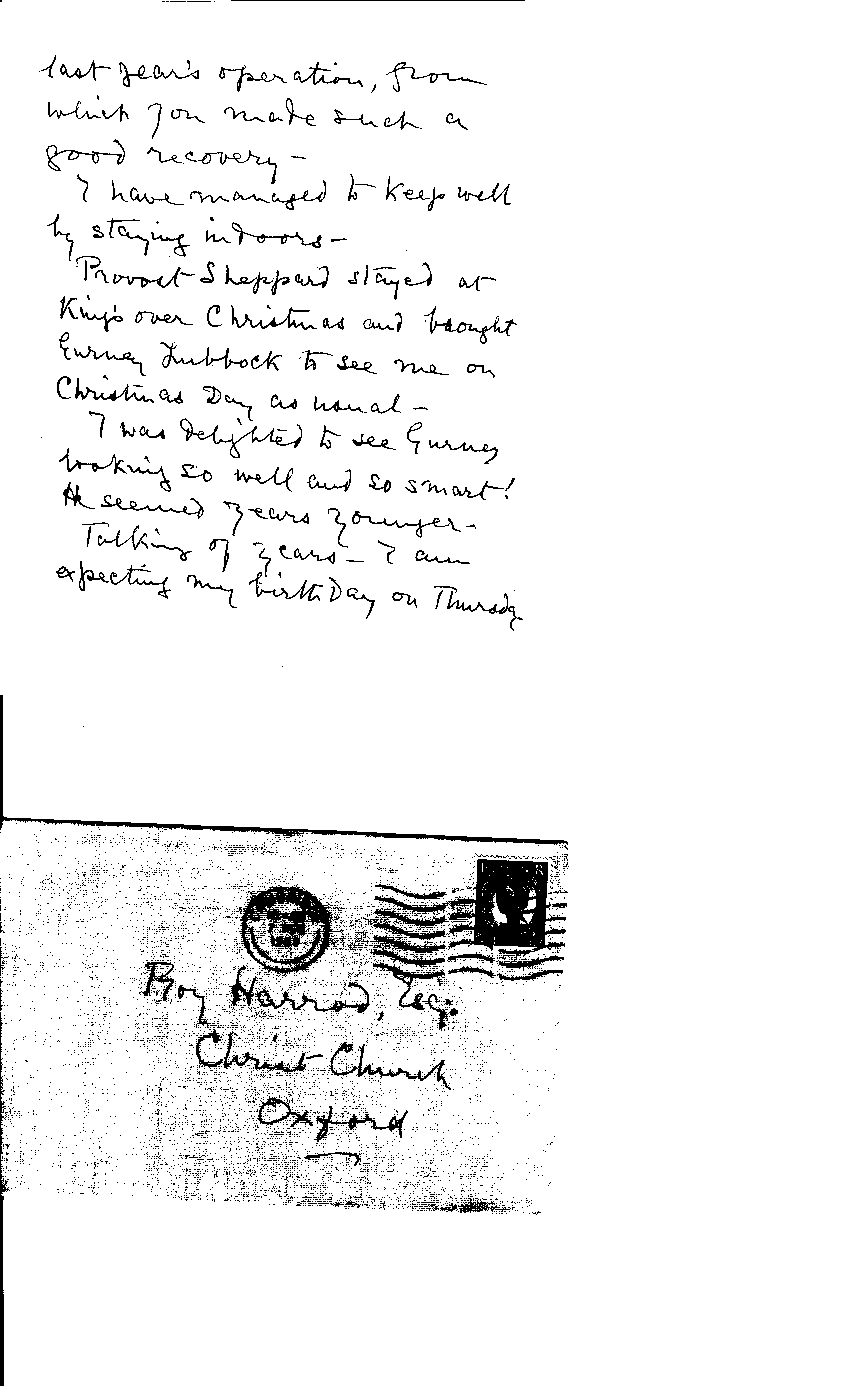 last year's operation, from
which you made such a
good recovery –
I have managed to keep well
by staying indoors –
Provost Sheppard stayed at
King's over Christmas and brought
Gurney Lubbock to see me on
Christmas Day as usual –
I was delighted to see Gurney
looking so well and so smart!
He seemed years younger –
Talking of years – I am
expecting my birthday on Thursday
Roy Harrod, Esq.
Christ Church
Oxford